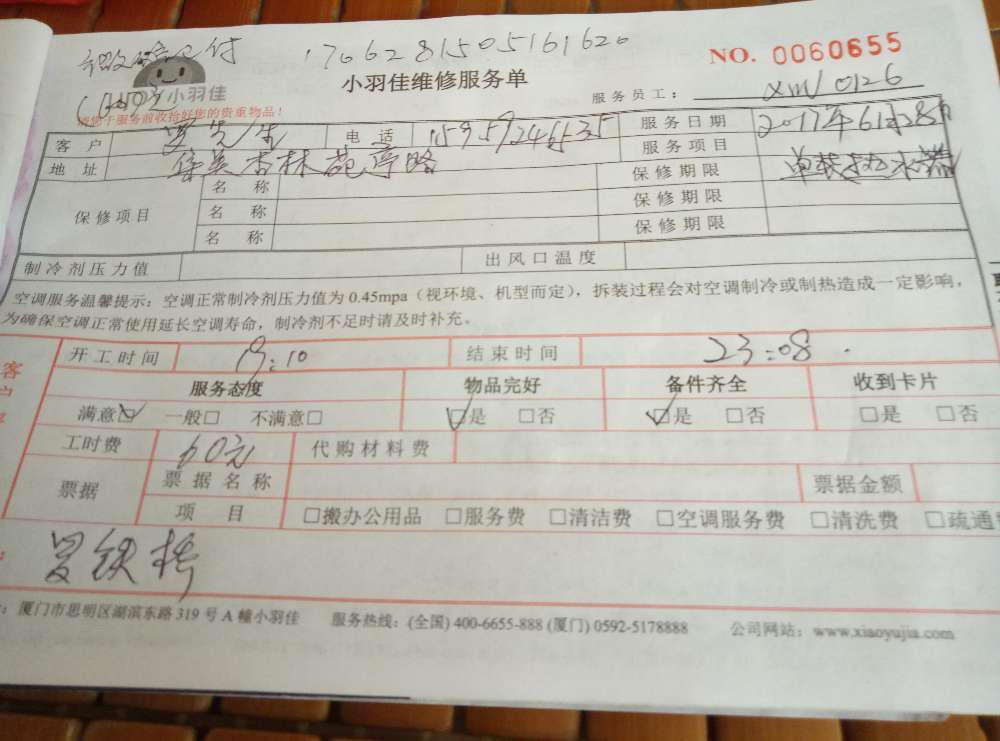 1706281505161620
NO. 0060655
小羽佳
小羽佳维修服务单
服务员工： XM 0126
您于服务前收拾好您的贵重物品！
客 户 先生 电 话 15959246535 服务日期 2017年6月28日
地 址 杏林 服务项目 单装热水器
保修项目 名 称 保修期限
名 称 保修期限
名 称 保修期限
制冷剂压力值 出风口温度
空调服务温馨提示：空调正常制冷剂压力值为0.45mpa（视环境、机型而定），拆装过程会对空调制冷或制热造成一定影响，
为确保空调正常使用延长空调寿命，制冷剂不足时请及时补充。
客
开工时间 19:10 结束时间 23:08
服务态度 物品完好 备件齐全 收到卡片
满意☑ 一般□ 不满意□ ☑是 □否 ☑是 □否 □是 □否
工时费 60元 代购材料费
票据 票据名称 票据金额
项 目 □搬办公用品 □服务费 □清洁费 □空调服务费 □清洗费 □疏通
厦门市思明区湖滨东路319号A幢小羽佳 服务热线：(全国) 400-6655-888 (厦门) 0592-5178888 公司网站：www.xiaoyujia.com